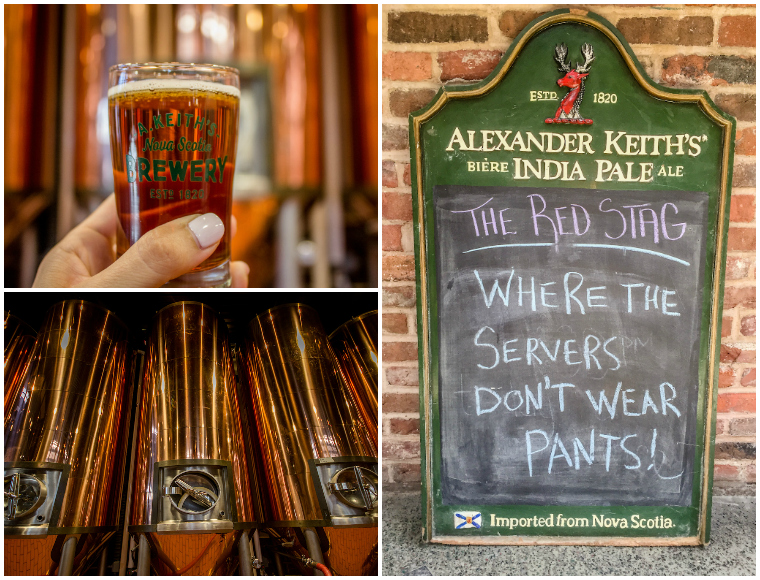 A. KEITH'S
Nova Scotia
BREWERY
ESTD 1820
ESTD. 1820
ALEXANDER KEITH'S
BIÈRE INDIA PALE ALE
THE RED STAG
WHERE THE
SERVERS
DON'T WEAR
PANTS!
Imported from Nova Scotia.